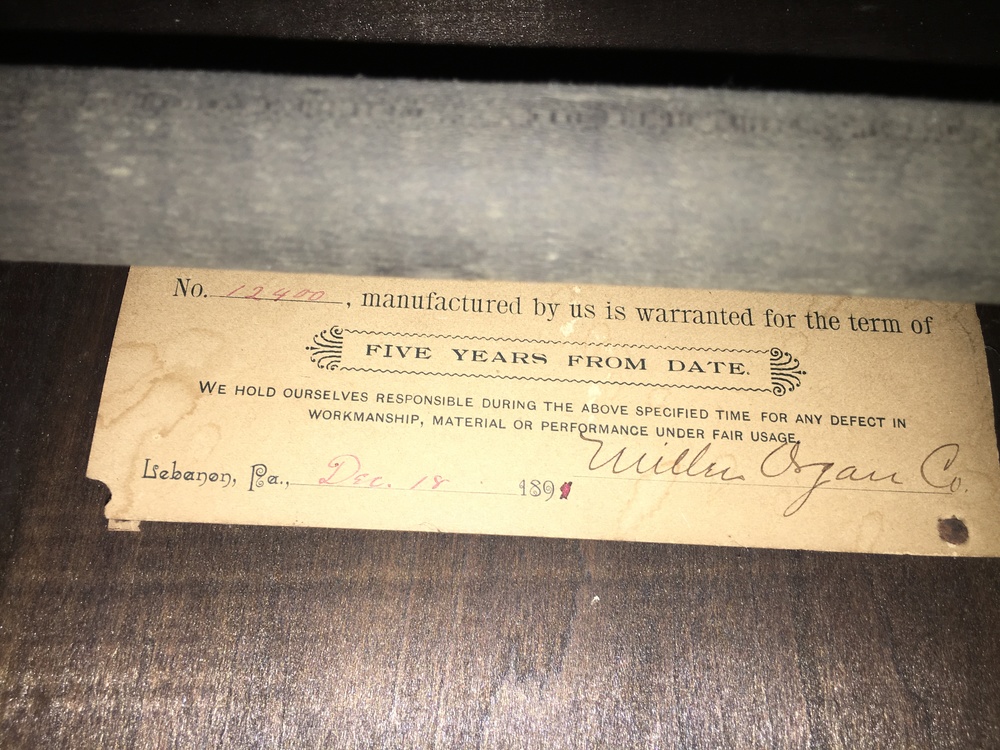 No. 12400, manufactured by us is warranted for the term of
FIVE YEARS FROM DATE.
WE HOLD OURSELVES RESPONSIBLE DURING THE ABOVE SPECIFIED TIME FOR ANY DEFECT IN
WORKMANSHIP, MATERIAL OR PERFORMANCE UNDER FAIR USAGE.
Miller Organ Co.
Lebanon, Pa., Dec. 18 189